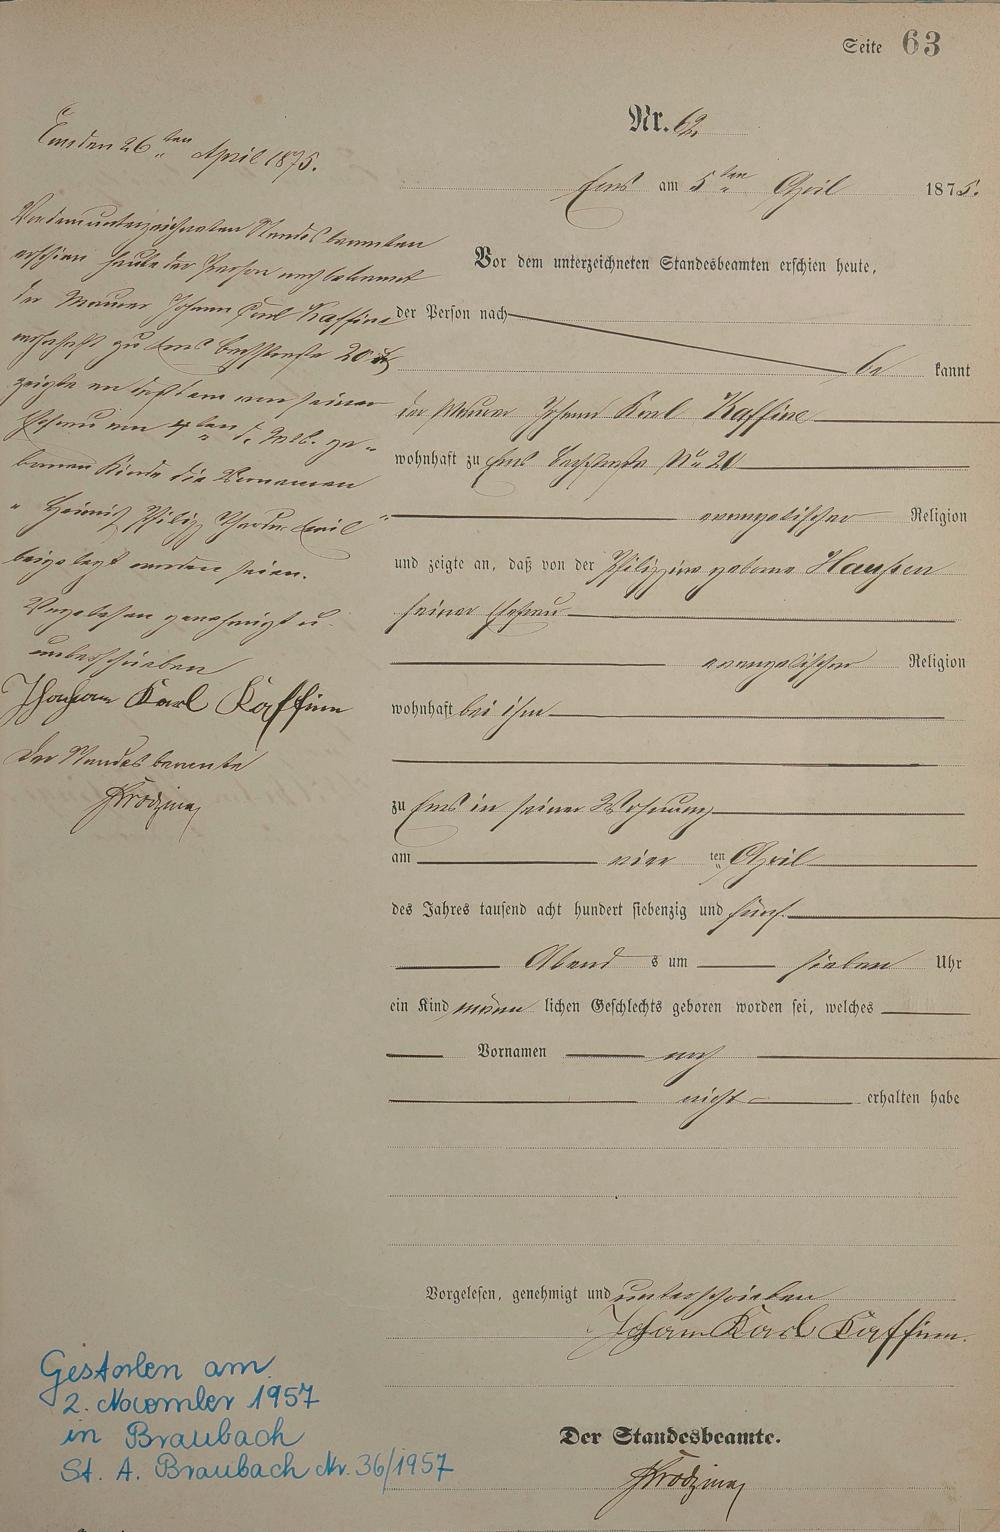 Seite 63
Nr. 62.
Ems am 5ten April 1875.
Vor dem unterzeichneten Standesbeamten erschien heute,
der Person nach
be kannt
der Maurer Johann Karl Kaffine
wohnhaft zu Ems Bachstraße No 20
evangelischer Religion
und zeigte an, daß von der Philippine geborne Haussen
seiner Ehefrau
evangelischer Religion
wohnhaft bei ihm
zu Ems in seiner Wohnung
am vier ten April
des Jahres tausend acht hundert siebenzig und fünf
Abend s um sieben Uhr
ein Kind männ lichen Geschlechts geboren worden sei, welches
Vornamen noch
nicht erhalten habe
Vorgelesen, genehmigt und unterschrieben
Johann Karl Kaffine.
Der Standesbeamte.
Ems den 26ten April 1875.
Vor dem unterzeichneten Standesbeamten
erschien heute der Person nach bekannt
der Maurer Johann Carl Kaffine
wohnhaft zu Ems Bachstraße 20
zeigte an daß dem von seiner
Ehefrau am 4ten d. Mts. ge-
borenen Kinde die Vornamen
"Heinrich Philipp Theodor Emil"
beigelegt worden seien.
Vorgelesen genehmigt u.
unterschrieben
Johann Karl Kaffine
Der Standesbeamte
Gestorben am
2. November 1957
in Braubach
St. A. Braubach Nr. 36/1957